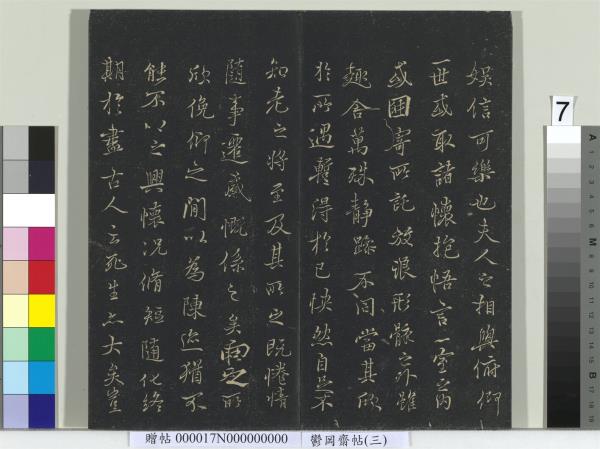 娛信可樂也夫人之相與俯仰
一世或取諸懷抱悟言一室之內
或因寄所託放浪形骸之外雖
趣舍萬殊靜躁不同當其欣
於所遇蹔得於己快然自足不
知老之將至及其所之既惓情
隨事遷感慨係之矣向之所
欣俛仰之閒以為陳迹猶不
能不以之興懷況脩短隨化終
期於盡古人云死生亦大矣豈
7
A 1 2 3 4 5 6 M 8 9 10 11 12 13 14 15 B 17 18 19
贈帖 000017N000000000 鬱岡齋帖(三)